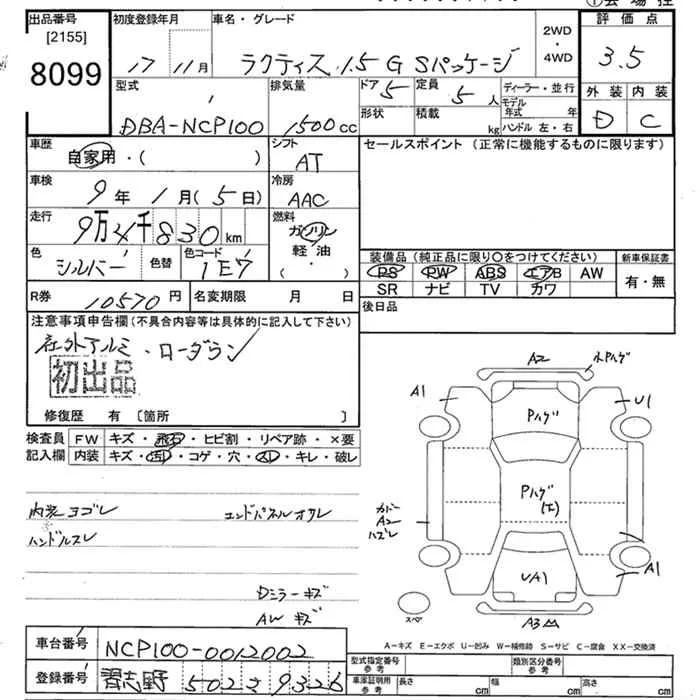 出品番号 [2155] 8099
初度登録年月 17 11月
車名・グレード ラクティス 1.5 G Sパッケージ
2WD・4WD
評価点 3.5
外装 D 内装 C
型式 DBA-NCP100
排気量 1500cc
ドア 5 定員 5人
形状 積載 kg
ディーラー・並行
モデル年式 年
ハンドル 左・右
車歴 自家用・( )
シフト AT
セールスポイント (正常に機能するものに限ります)
車検 9年 1月(5日)
冷房 AAC
走行 9万4千830km
燃料 ガソリン 軽油・( )
色 シルバー 色替 色コード 1E7
装備品 (純正品に限り○をつけてください)
新車保証書 有・無
PS PW ABS エアB AW
SR ナビ TV カワ
R券 10570円 名変期限 月 日
後日品
注意事項申告欄 (不具合内容等は具体的に記入して下さい)
社外アルミ・ローダウン
初出品
修復歴 有 〔箇所 〕
検査員記入欄
FW キズ・飛石・ヒビ割・リペア跡・×要
内装 キズ・汚レ・コゲ・穴・スレ・キレ・破レ
内装ヨゴレ エンドパネルオサレ
ハンドルスレ
Dミラーキズ
AWキズ
A2
A1
U1
Pハゲ
Pハゲ
カバー
A2
ハズレ
UA1
A1
スペア
A3
A-キズ E-エクボ U-凹み W-補修跡 S-サビ C-腐食 XX-交換済
車台番号 NCP100-0012002
登録番号 習志野 502 さ 9326
型式指定番号 参考 類別区分番号 参考
車庫証明用 参考 長さ cm 幅 cm 高さ cm